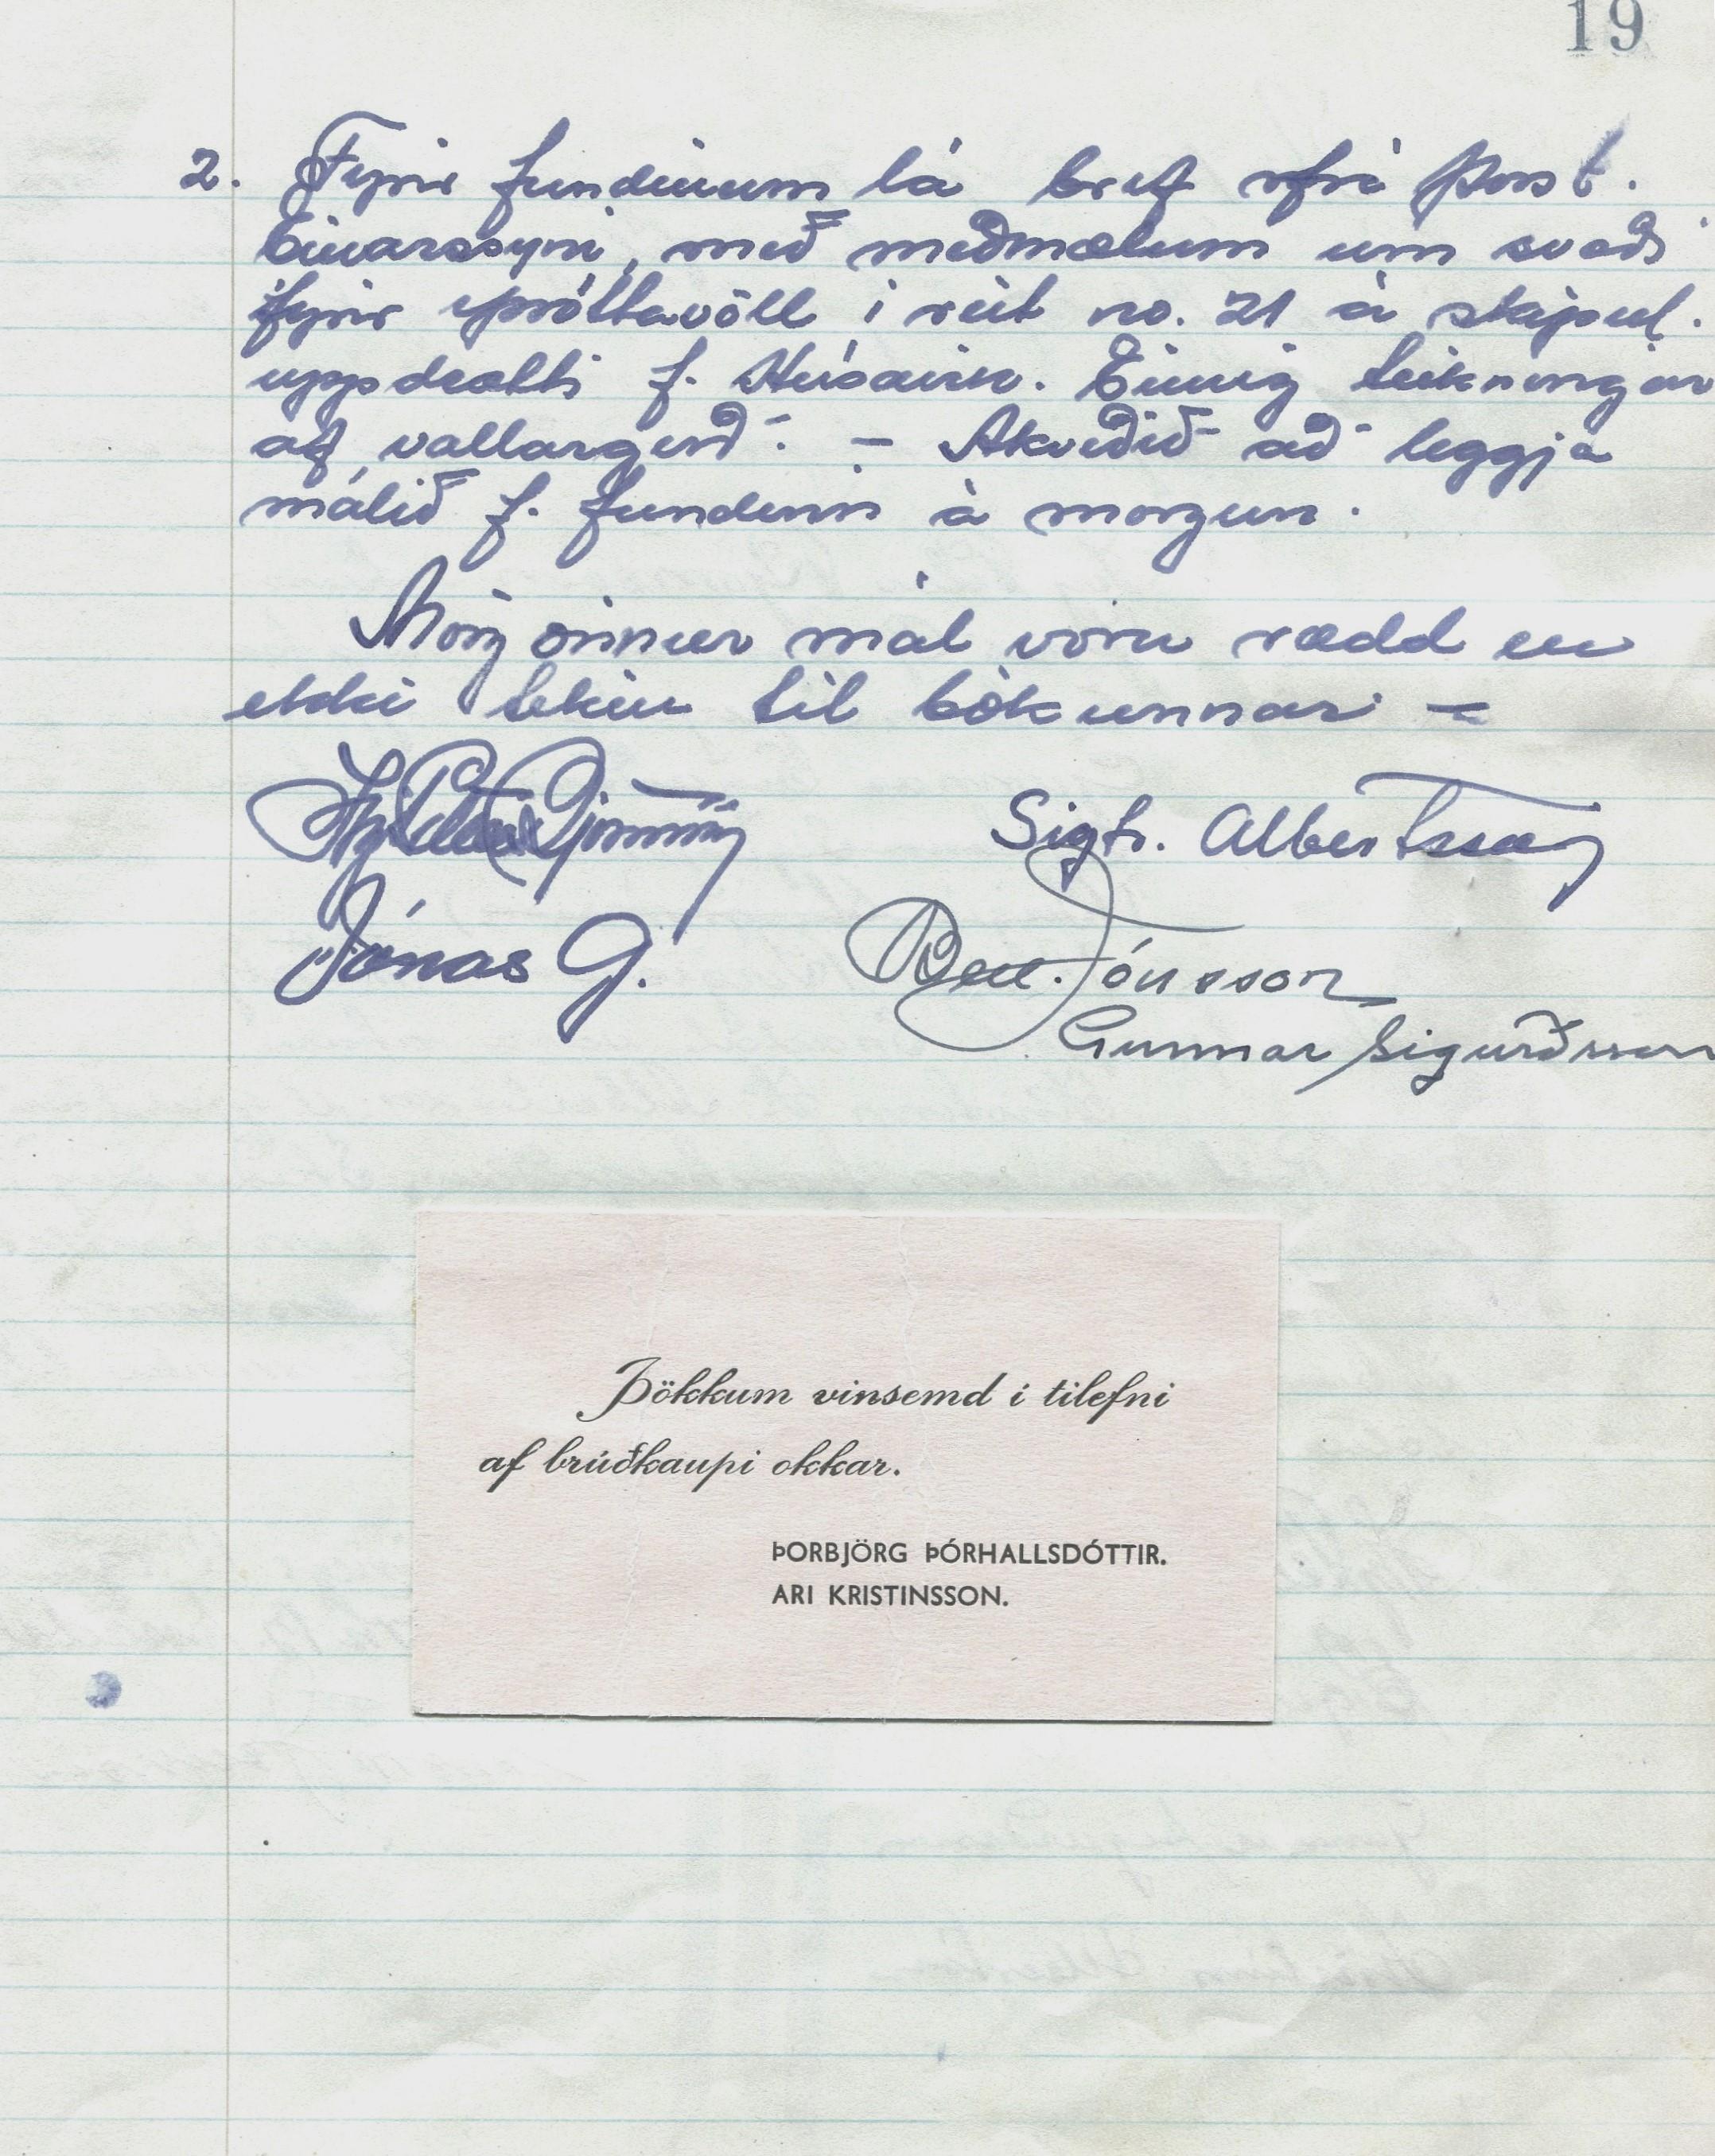 19
2. Fyrir fundinum lá bréf frá Þorst.
Einarssyni, með meðmælum um svæði
fyrir íþróttavöll í reit no. 21 á skipul.
uppdrætti f. Húsavík. Einnig teikningar
af vallargerð. - Ákveðið að leggja
málið f. fundinn á morgun.
Mörg önnur mál voru rædd en
ekki tekin til bókunnar -
Sigtr. Albertsson
Jónas G.
Ben. Jónsson
Gunnar Sigurðsson
Þökkum vinsemd í tilefni
af brúðkaupi okkar.
ÞORBJÖRG ÞÓRHALLSDÓTTIR.
ARI KRISTINSSON.